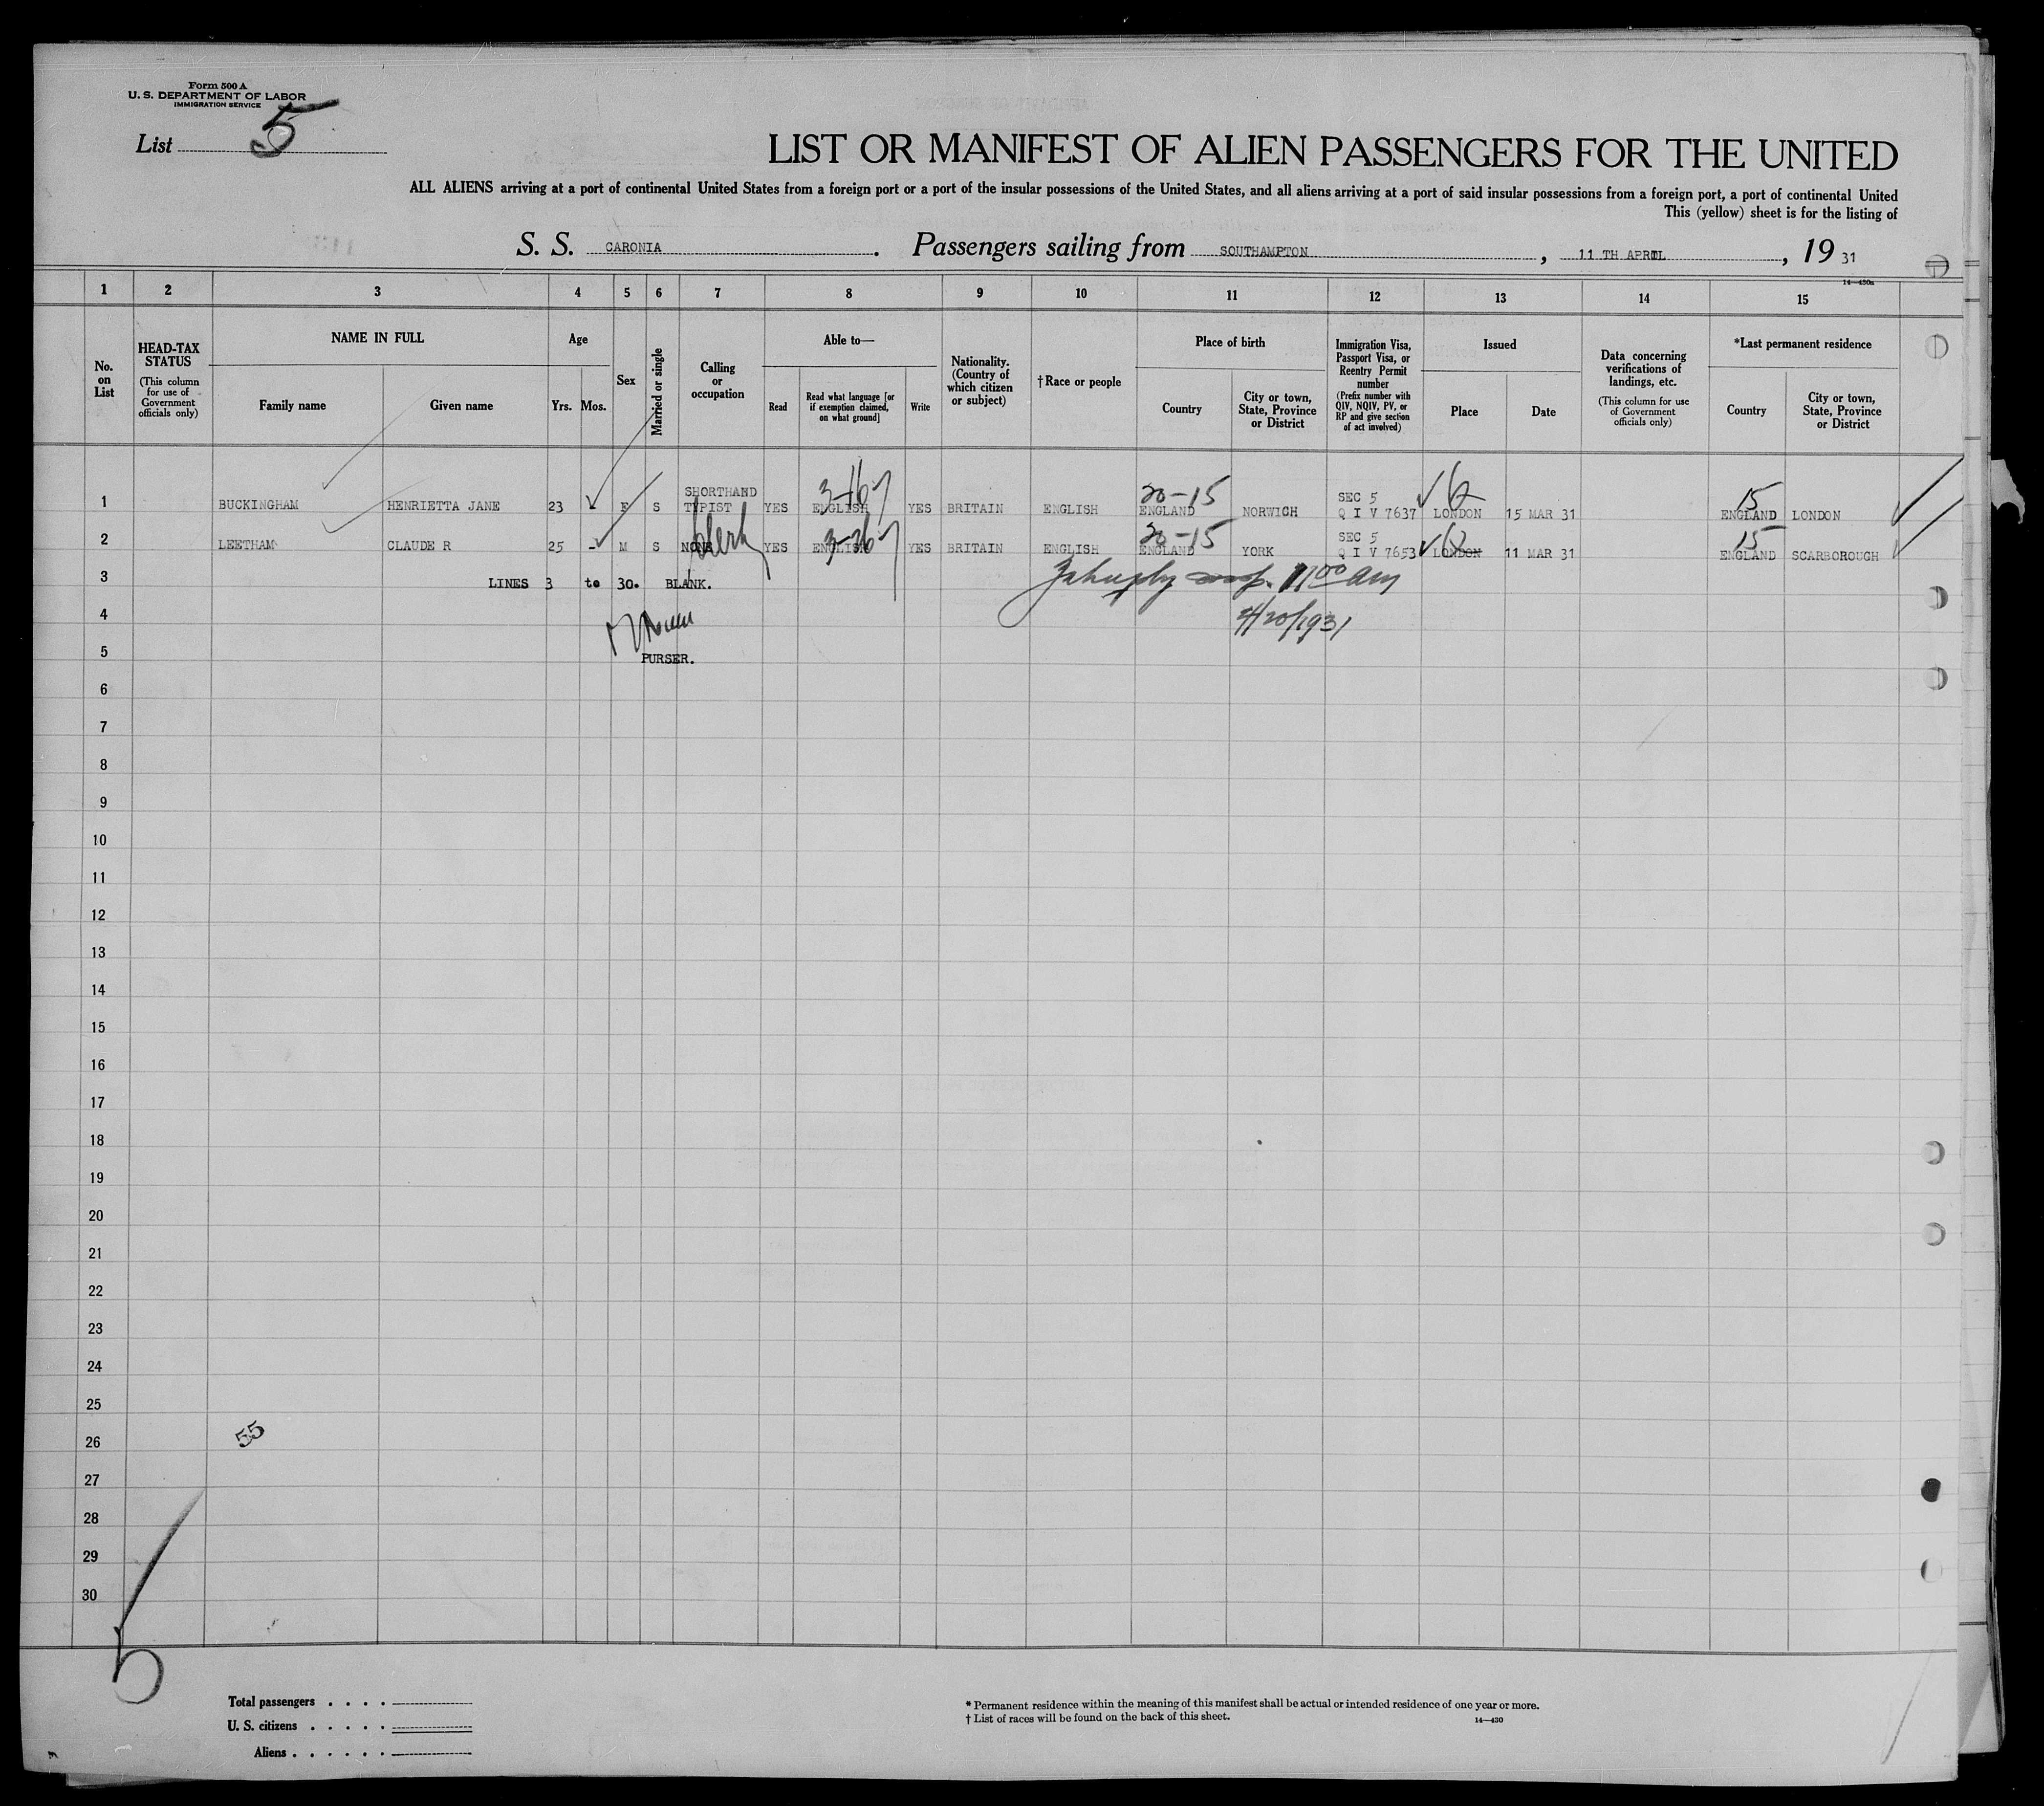 Form 500 A
U. S. DEPARTMENT OF LABOR
IMMIGRATION SERVICE
List 5
LIST OR MANIFEST OF ALIEN PASSENGERS FOR THE UNITED
ALL ALIENS arriving at a port of continental United States from a foreign port or a port of the insular possessions of the United States, and all aliens arriving at a port of said insular possessions from a foreign port, a port of continental United
This (yellow) sheet is for the listing of
S. S. CARONIA. Passengers sailing from SOUTHAMPTON, 11 TH APRIL, 19 31
14—430a
1 2 3 4 5 6 7 8 9 10 11 12 13 14 15
No. on List
HEAD-TAX STATUS
(This column for use of Government officials only)
NAME IN FULL
Family name
Given name
Age
Yrs. Mos.
Sex
Married or single
Calling or occupation
Able to—
Read
Read what language [or if exemption claimed, on what ground]
Write
Nationality. (Country of which citizen or subject)
† Race or people
Place of birth
Country
City or town, State, Province or District
Immigration Visa, Passport Visa, or Reentry Permit number
(Prefix number with QIV, NQIV, PV, or RP and give section of act involved)
Issued
Place
Date
Data concerning verifications of landings, etc.
(This column for use of Government officials only)
*Last permanent residence
Country
City or town, State, Province or District
SHORTHAND 3-167 20-15 SEC 5 15
1 BUCKINGHAM HENRIETTA JANE 23 F S TYPIST YES ENGLISH YES BRITAIN ENGLISH ENGLAND NORWICH Q I V 7637 LONDON 15 MAR 31 ENGLAND LONDON
clerk 20-15 SEC 5 15
2 LEETHAM CLAUDE R 25 - M S NONE YES ENGLISH YES BRITAIN ENGLISH ENGLAND YORK Q I V 7653 LONDON 11 MAR 31 ENGLAND SCARBOROUGH
3 LINES 3 to 30. BLANK. 11 00 am
4 4/20/1931
5 PURSER.
6
7
8
9
10
11
12
13
14
15
16
17
18
19
20
21
22
23
24
25
26 55
27
28
29
30
5
Total passengers . . . .
U. S. citizens . . . . .
Aliens . . . . . .
* Permanent residence within the meaning of this manifest shall be actual or intended residence of one year or more.
† List of races will be found on the back of this sheet.
14—430